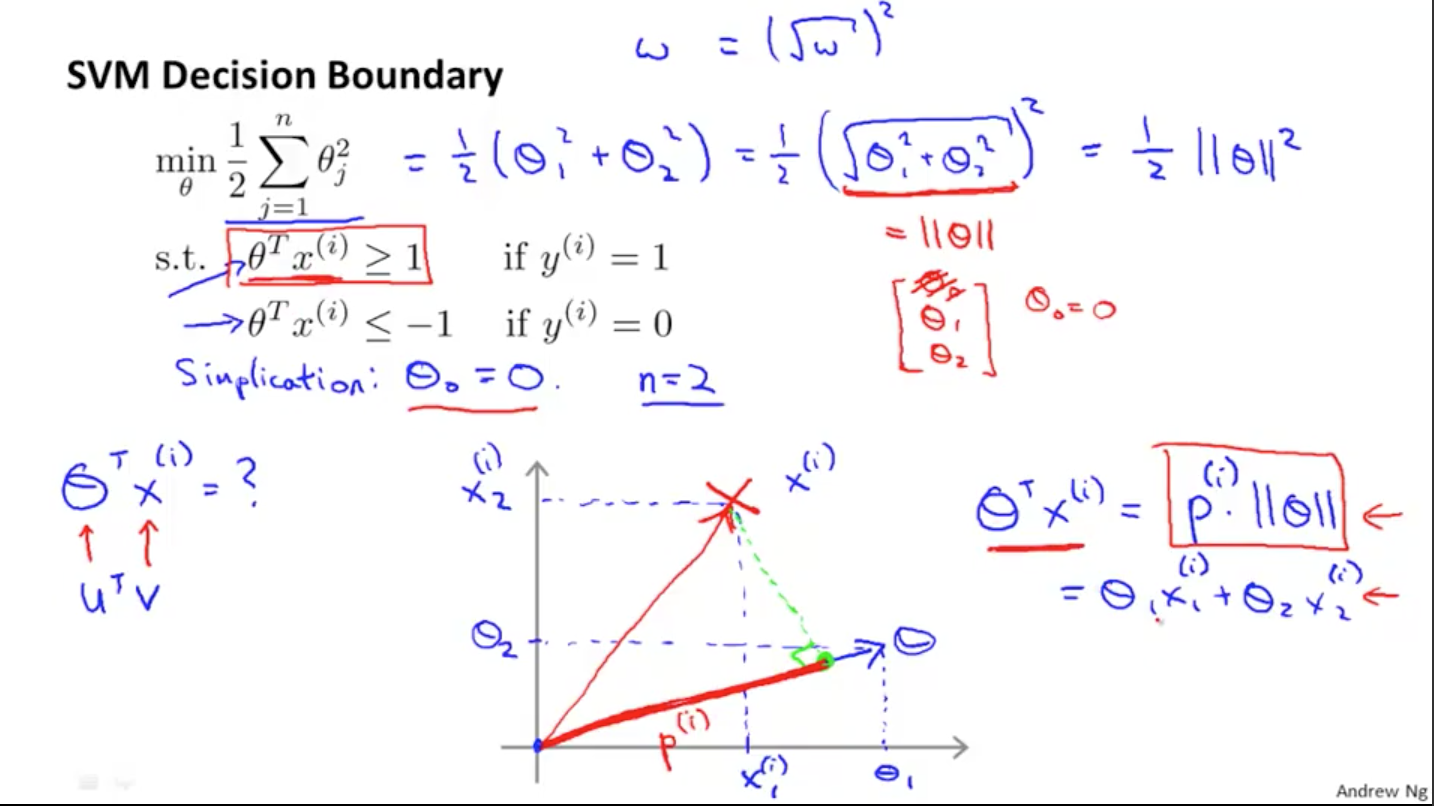 ω = (√ω)²
SVM Decision Boundary
min_θ 1/2 ∑_{j=1}^{n} θ_j² = 1/2 (θ₁² + θ₂²) = 1/2 (√(θ₁² + θ₂²))² = 1/2 ||θ||²
= ||θ||
s.t. θᵀx⁽ⁱ⁾ ≥ 1 if y⁽ⁱ⁾ = 1
[θ₁ θ₂] θ₀ = 0
θᵀx⁽ⁱ⁾ ≤ −1 if y⁽ⁱ⁾ = 0
Simplication: θ₀ = 0. n=2
θᵀx⁽ⁱ⁾ = ?
uᵀv
x₂⁽ⁱ⁾
x⁽ⁱ⁾
θ₂
θ
p⁽ⁱ⁾
x₁⁽ⁱ⁾
θ₁
θᵀx⁽ⁱ⁾ = p⁽ⁱ⁾ · ||θ|| ←
= θ₁x₁⁽ⁱ⁾ + θ₂x₂⁽ⁱ⁾ ←
Andrew Ng